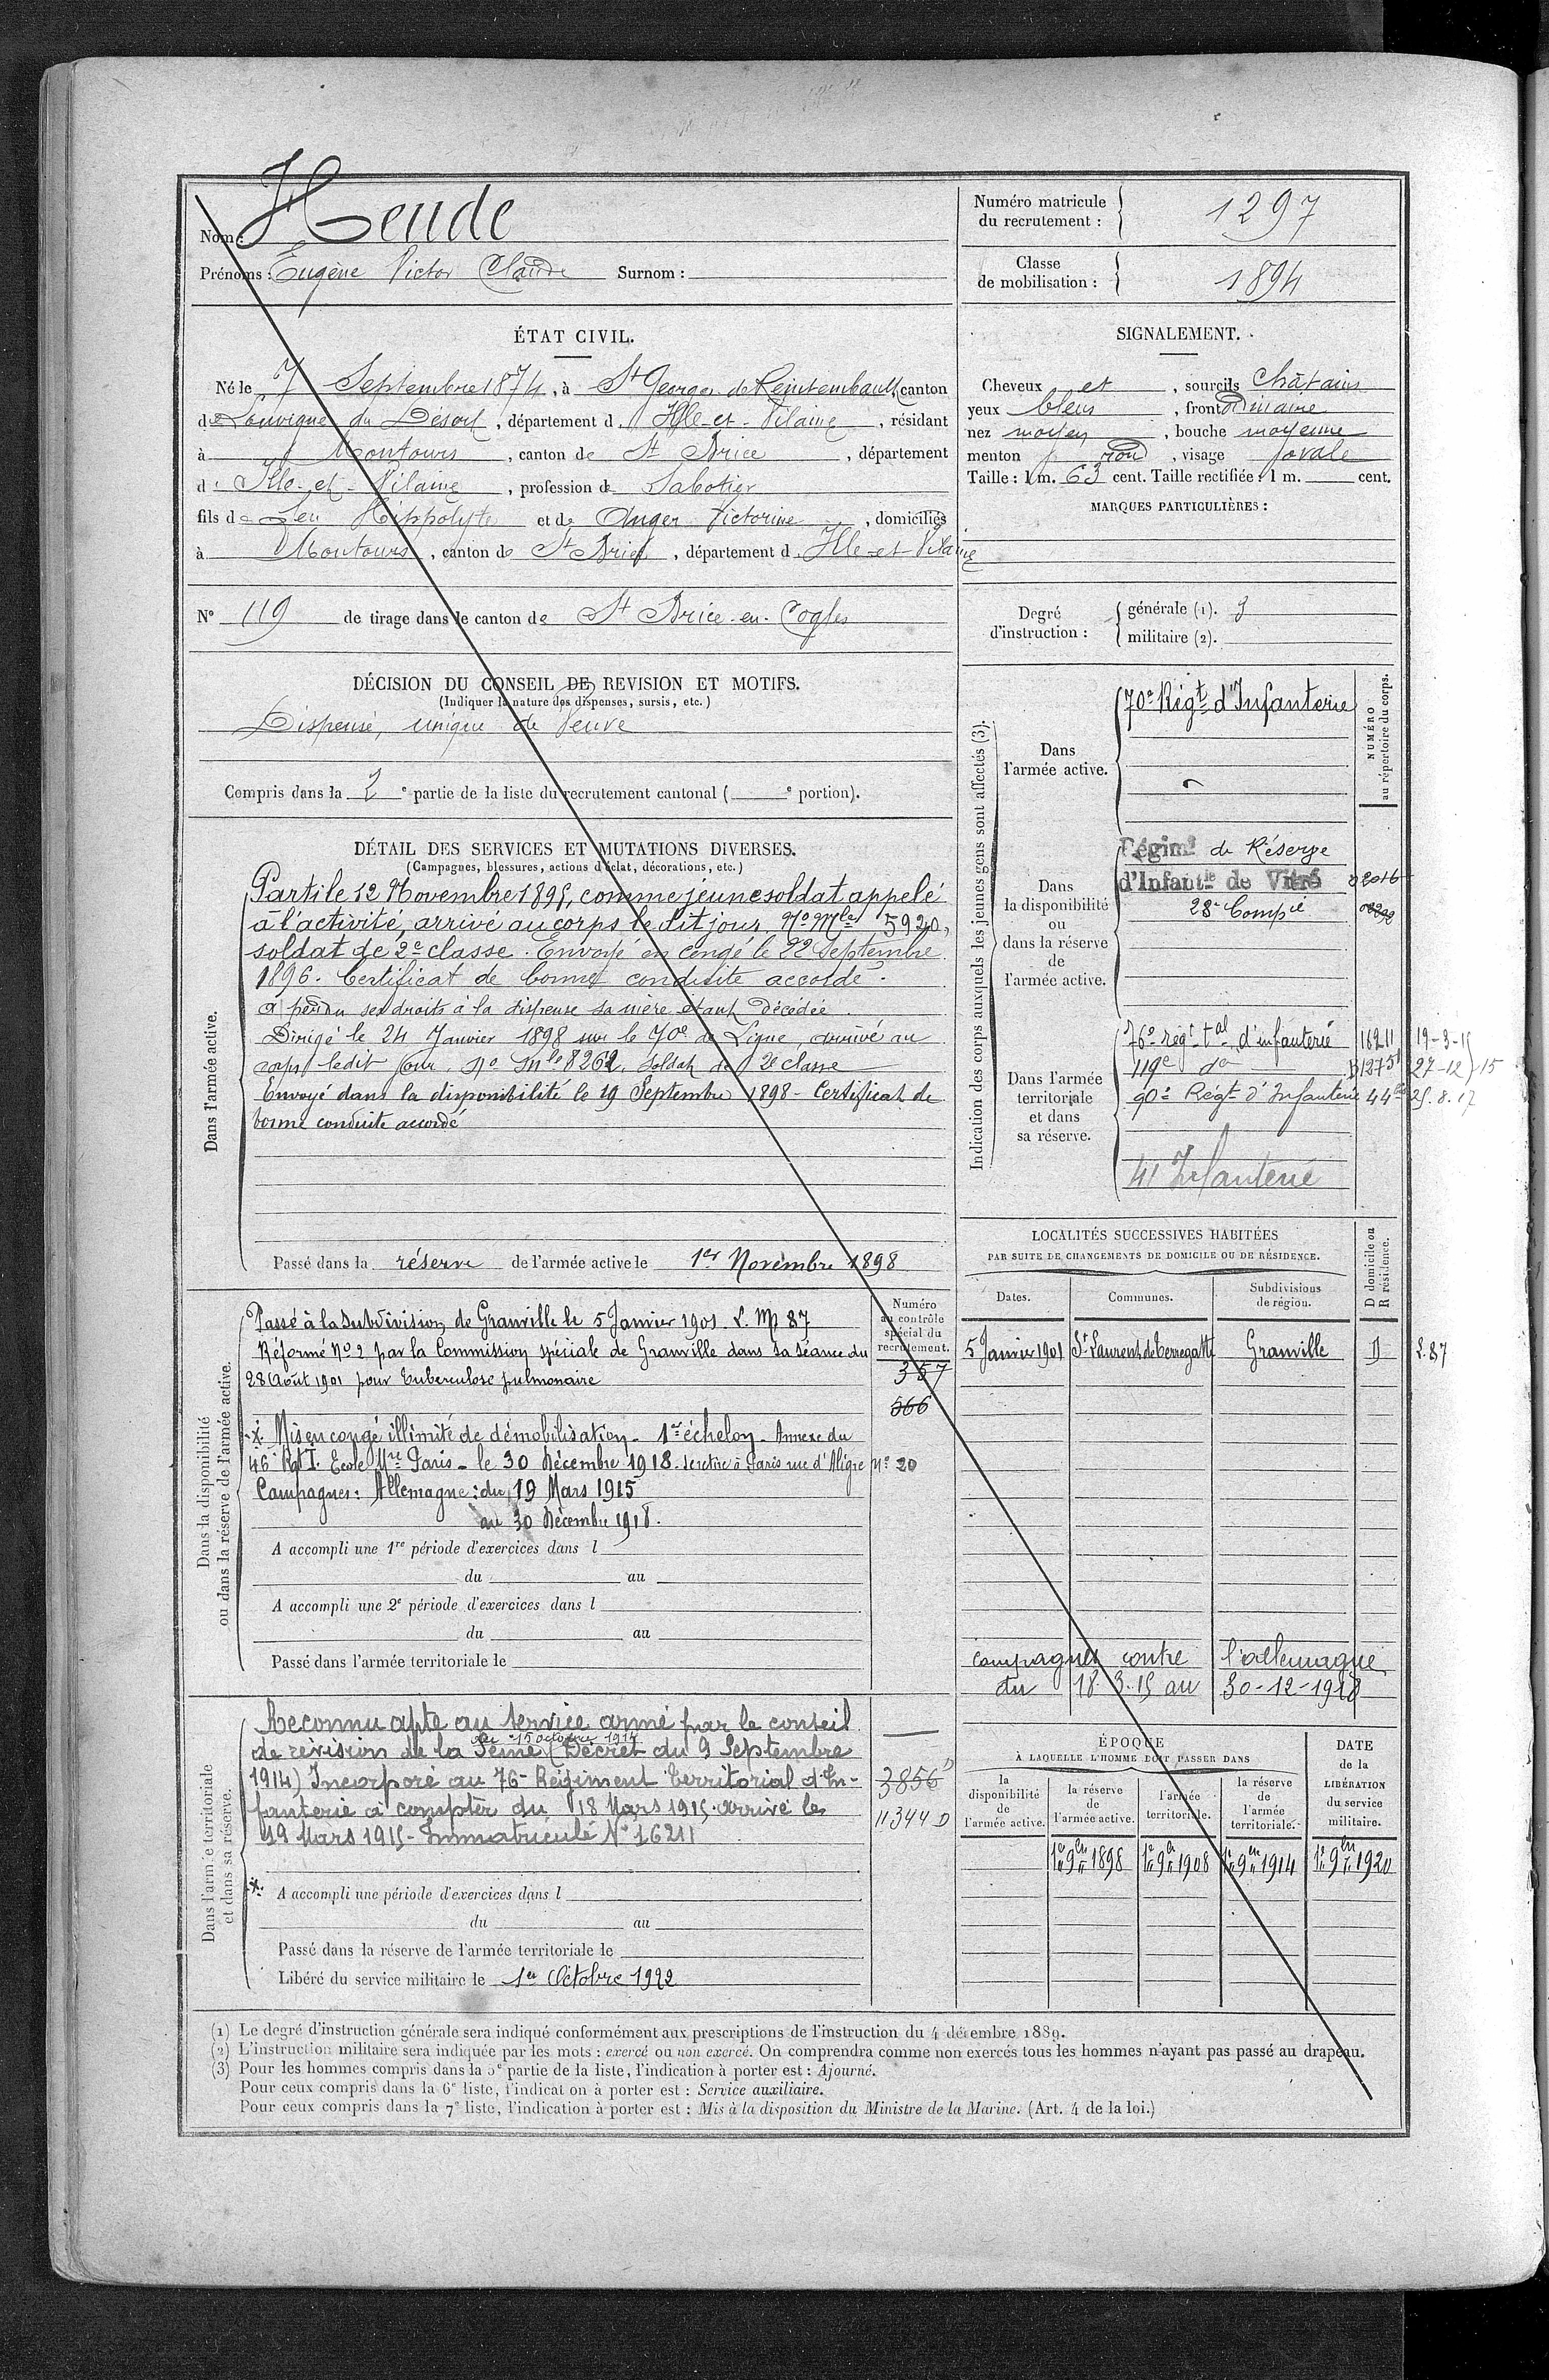 Nom : Heude
Prénoms : Eugène Victor Claude Surnom :
Numéro matricule
du recrutement : 1297
Classe
de mobilisation : 1894
ÉTAT CIVIL.
Né le 7 Septembre 1874, à St Georges de Reintembault, canton
de Louvigné du Désert, département d. Ille-et-Vilaine, résidant
à Montours, canton de St Brice, département
d. Ille-et-Vilaine, profession de Sabotier
fils de feu Hippolyte et de Anger Victorine, domiciliés
à Montours, canton de St Brice, département d. Ille-et-Vilaine
N° 119 de tirage dans le canton de St Brice-en-Cogles
SIGNALEMENT.
Cheveux et, sourcils châtains
yeux bleus, front ordinaire
nez moyen, bouche moyenne
menton rond, visage ovale
Taille : 1 m. 63 cent. Taille rectifiée : 1 m. cent.
MARQUES PARTICULIÈRES :
Degré
d'instruction :
générale (1). 3
militaire (2).
DÉCISION DU CONSEIL DE REVISION ET MOTIFS.
(Indiquer la nature des dispenses, sursis, etc.)
Dispensé, unique de Veuve
Compris dans la 2e partie de la liste du recrutement cantonal ( e portion).
DÉTAIL DES SERVICES ET MUTATIONS DIVERSES.
(Campagnes, blessures, actions d'éclat, décorations, etc.)
Dans l'armée active.
Parti le 12 Novembre 1895, comme jeune soldat appelé
à l'activité, arrivé au corps le dit jour. No Mle 5920,
soldat de 2e classe. Envoyé en congé le 22 Septembre
1896. Certificat de bonne conduite accordé.
A perdu ses droits à la dispense sa mère étant décédée.
Dirigé le 24 Janvier 1898 sur le 70e de Ligne, arrivé au
corps ledit jour No Mle 8262, soldat de 2e classe
Envoyé dans la disponibilité le 19 Septembre 1898 - Certificat de
bonne conduite accordé
Passé dans la réserve de l'armée active le 1er Novembre 1898
Indication des corps auxquels les jeunes gens sont affectés (3).
NUMÉRO
au répertoire du corps.
Dans
l'armée active.
70e Régt d'Infanterie
Dans
la disponibilité
ou
dans la réserve
de
l'armée active.
Régimt de Réserve
d'Infantie de Vitré 02016
28e Compie
Dans l'armée
territoriale
et dans
sa réserve.
76e régt tal d'infanterie 16211 19-3-15
119e do 27-12-15
90e Régt d'Infanterie 25.8.17
41 Infanterie
Dans la disponibilité
ou dans la réserve de l'armée active.
Numéro
au contrôle
spécial du
recrutement.
357
566
Passé à la subdivision de Granville le 5 Janvier 1901 L. M 87
Réformé No 2 par la Commission spéciale de Granville dans sa séance du
28 Août 1901 pour tuberculose pulmonaire
Mis en congé illimité de démobilisation - 1er échelon - Annexe du
46e RgtI. Ecole Mre Paris - le 30 Décembre 1918. se retire à Paris rue d'Aligre No 20
Campagnes : Allemagne : du 19 Mars 1915
au 30 Décembre 1918.
A accompli une 1re période d'exercices dans l
du au
A accompli une 2e période d'exercices dans l
du au
Passé dans l'armée territoriale le
LOCALITÉS SUCCESSIVES HABITÉES
PAR SUITE DE CHANGEMENTS DE DOMICILE OU DE RÉSIDENCE.
Dates. Communes. Subdivisions
de région. D domicile ou
R résidence.
5 Janvier 1901 St Laurent de Terregatte Granville D L.87
campagnes contre l'allemagne
du 18.3.15 au 30-12-1918
Dans l'armée territoriale
et dans sa réserve.
Reconnu apte au service armé par le conseil
du 15 octobre 1914
de révision de la Seine (Décret du 9 Septembre
1914) Incorporé au 76e Régiment territorial d'In-
fanterie à compter du 18 Mars 1915. arrivé le
19 Mars 1915 - Immatriculé No 16211
3856
11344 D
A accompli une période d'exercices dans l
du au
Passé dans la réserve de l'armée territoriale le
Libéré du service militaire le 1er Octobre 1922
ÉPOQUE
À LAQUELLE L'HOMME DOIT PASSER DANS
la
disponibilité
de
l'armée active.
la réserve
de
l'armée active.
l'armée
territoriale.
la réserve
de
l'armée
territoriale.
DATE
de la
LIBÉRATION
du service
militaire.
1er 9bre 1898 1er 9bre 1908 1er 9bre 1914 1er 9bre 1920
(1) Le degré d'instruction générale sera indiqué conformément aux prescriptions de l'instruction du 4 décembre 1889.
(2) L'instruction militaire sera indiquée par les mots : exercé ou non exercé. On comprendra comme non exercés tous les hommes n'ayant pas passé au drapeau.
(3) Pour les hommes compris dans la 5e partie de la liste, l'indication à porter est : Ajourné.
Pour ceux compris dans la 6e liste, l'indication à porter est : Service auxiliaire.
Pour ceux compris dans la 7e liste, l'indication à porter est : Mis à la disposition du Ministre de la Marine. (Art. 4 de la loi.)